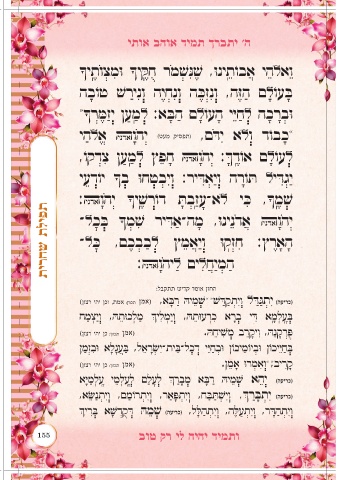 ה' יתברך תמיד אוהב אותי
וֵאלֹהֵי אֲבוֹתֵינוּ, שֶׁנִּשְׁמֹר חֻקֶּיךָ וּמִצְוֹתֶיךָ
בָּעוֹלָם הַזֶּה, וְנִזְכֶּה וְנִחְיֶה וְנִירַשׁ טוֹבָה
וּבְרָכָה לְחַיֵּי הָעוֹלָם הַבָּא: לְמַעַן יְזַמֶּרְךָ
כָבוֹד וְלֹא יִדֹּם, (תפסיק מעט) יְהֹוָה אֱלֹהַי
לְעוֹלָם אוֹדֶךָּ: יְהֹוָה חָפֵץ לְמַעַן צִדְקוֹ,
יַגְדִּיל תּוֹרָה וְיַאְדִּיר: וְיִבְטְחוּ בְךָ יוֹדְעֵי
שְׁמֶךָ, כִּי לֹא־עָזַבְתָּ דּוֹרְשֶׁיךָ יְהֹוָה:
יְהֹוָה אֲדֹנֵינוּ, מָה־אַדִּיר שִׁמְךָ בְּכָל־
הָאָרֶץ: חִזְקוּ וְיַאֲמֵץ לְבַבְכֶם, כָּל־
הַמְיַחֲלִים לַיהֹוָה:
החזן אומר קדיש תתקבל:
(כריעה) יִתְגַּדַּל וְיִתְקַדַּשׁ שְׁמֵיהּ רַבָּא, (אמן
בְּעָלְמָא דִּי בְרָא כִרְעוּתֵהּ, וְיַמְלִיךְ מַלְכוּתֵהּ, וְיַצְמַח
פֻּרְקָנֵהּ, וִיקָרֵב מְשִׁיחֵהּ,
בְּחַיֵּיכוֹן וּבְיוֹמֵיכוֹן וּבְחַיֵּי דְכָל־בֵּית־יִשְׂרָאֵל, בַּעֲגָלָא וּבִזְמַן
קָרִיב; וְאִמְרוּ אָמֵן,
(כריעה) יְהֵא שְׁמֵיהּ רַבָּא מְבָרַךְ לְעָלַם לְעָלְמֵי עָלְמַיָּא
(כריעה) יִתְבָּרַךְ, וְיִשְׁתַּבַּח, וְיִתְפָּאַר, וְיִתְרוֹמַם, וְיִתְנַשֵּׂא,
וְיִתְהַדָּר, וְיִתְעַלֶּה, וְיִתְהַלָּל, (כריעה) שְׁמֵהּ דְּקֻדְשָׁא בְּרִיךְ
ותמיד יהיה לי רק טוב
תפילת שחרית
155